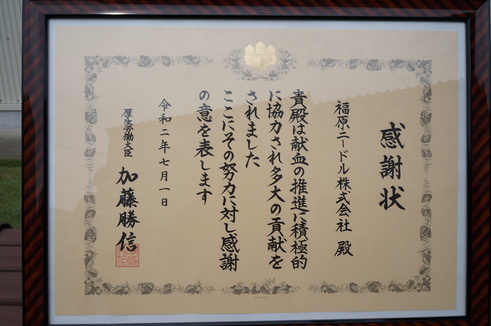 感謝状
福原ニードル株式会社 殿
貴殿は献血の推進に積極的
に協力され多大の貢献を
されました
ここにその努力に対し感謝
の意を表します
令和二年七月一日
厚生労働大臣 加藤勝信